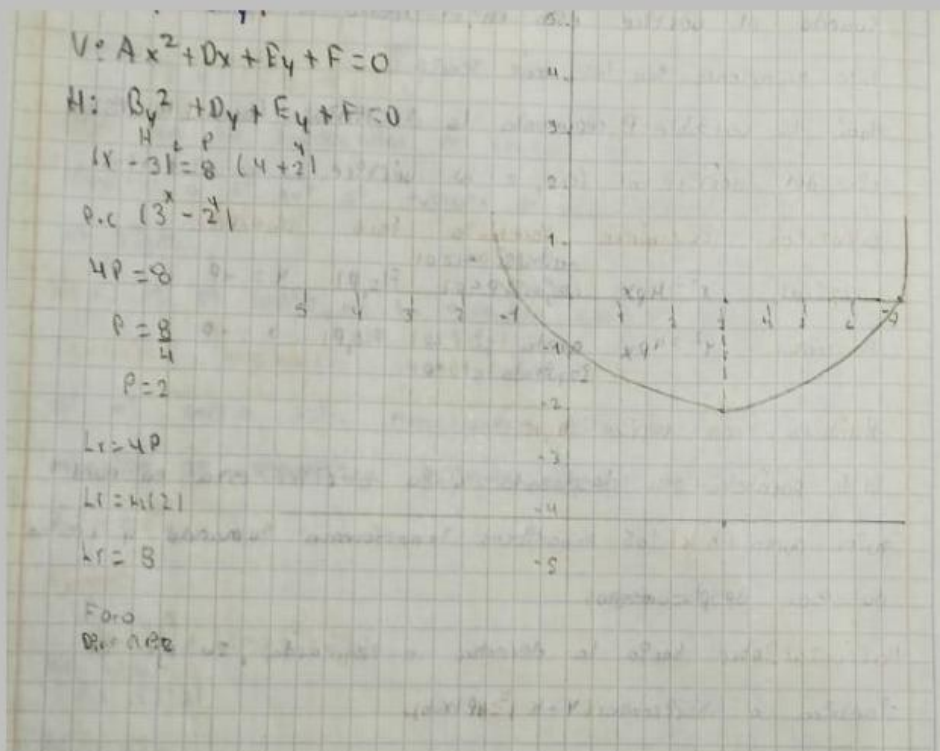 V: Ax² + Dx + Ey + F = 0
H: By² + Dy + Ey + F = 0
H P y
(x - 3)² = 8 (y + 2)
P.C (3 - 2)
x y
4P = 8
P = 8/4
P = 2
Lr = 4P
Lr = 4(2)
Lr = 8
Foro
4
3
2
1
5 4 3 2 -1 1 2 3 4 5 6 7
-1
-2
-3
-4
-5